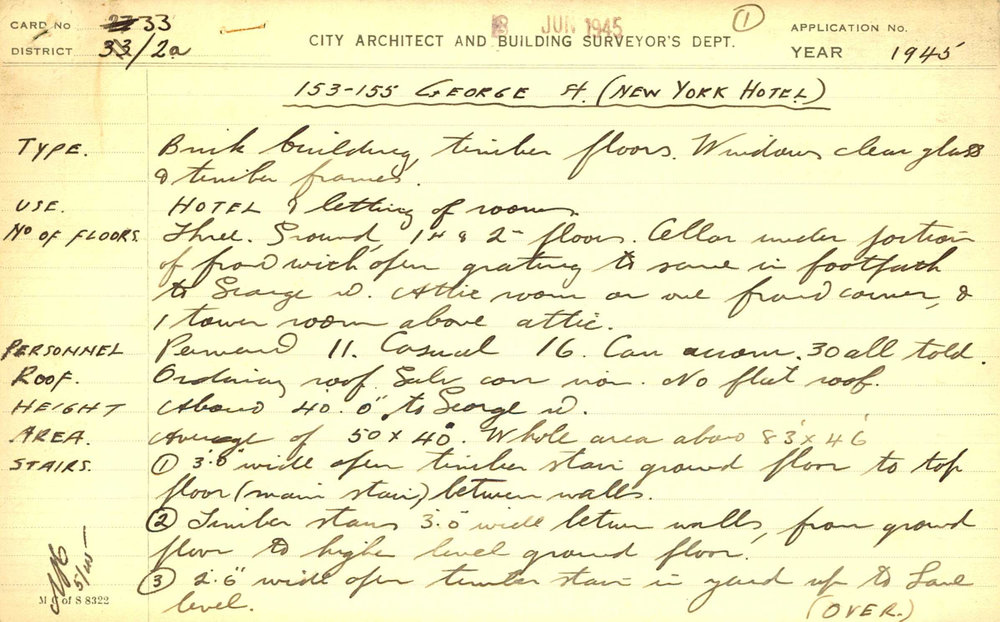 CARD No 27 33
8 JUN 1945
1
APPLICATION No.
DISTRICT 33/2a
CITY ARCHITECT AND BUILDING SURVEYOR'S DEPT.
YEAR 1945
153-155 GEORGE St. (NEW YORK HOTEL)
TYPE. Brick building, timber floors. Windows clear glass
& timber frames.
USE. HOTEL & letting of rooms.
No OF FLOORS. Three. Ground, 1st & 2nd floors. Cellar under portion
of front with open grating to same in footpath
to George St. Attic room on one front corner, &
1 tower room above attic.
PERSONNEL Permanent 11. Casual 16. Can accom. 30 all told.
ROOF. Ordinary roof. Galv corr iron. No flat roof.
HEIGHT About 40'.0" to George St.
AREA. Average of 50' x 40'. Whole area about 83' x 46'
STAIRS. (1) 3'.0" wide open timber stair ground floor to top
floor (main stair) between walls.
(2) Timber stairs 3'.0" wide between walls, from ground
floor to higher level ground floor.
(3) 2'.6" wide open timber stair in yard up to Lane
level.
(OVER.)
5/45
M C of S 8322